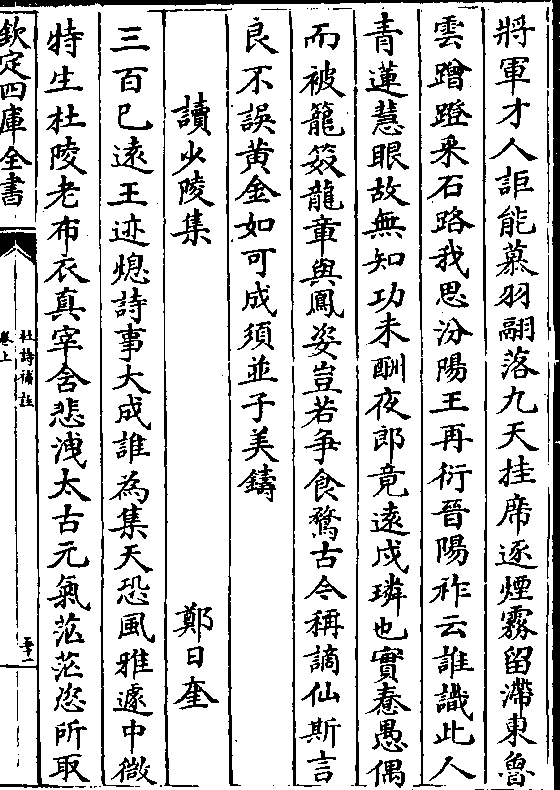 將軍才人詎能慕羽翮落九天挂席逐煙霧留滯東魯
雲蹭蹬采石路我思汾陽王再衍晉陽祚云誰識此人
青蓮慧眼故無知功未酬夜郎竟遠戍璘也實蠢愚偶
而被籠笯龍章與鳳姿豈若爭食鶩古今稱謫仙斯言
良不誤黄金如可成須並子美鑄
讀少陵集 鄭日奎
三百已遠王迹熄詩事大成誰為集天恐風雅遽中微
特生杜陵老布衣真宰舍悲洩太古元氣茫茫恣所取
欽定四庫全書
卷上
杜詩補註